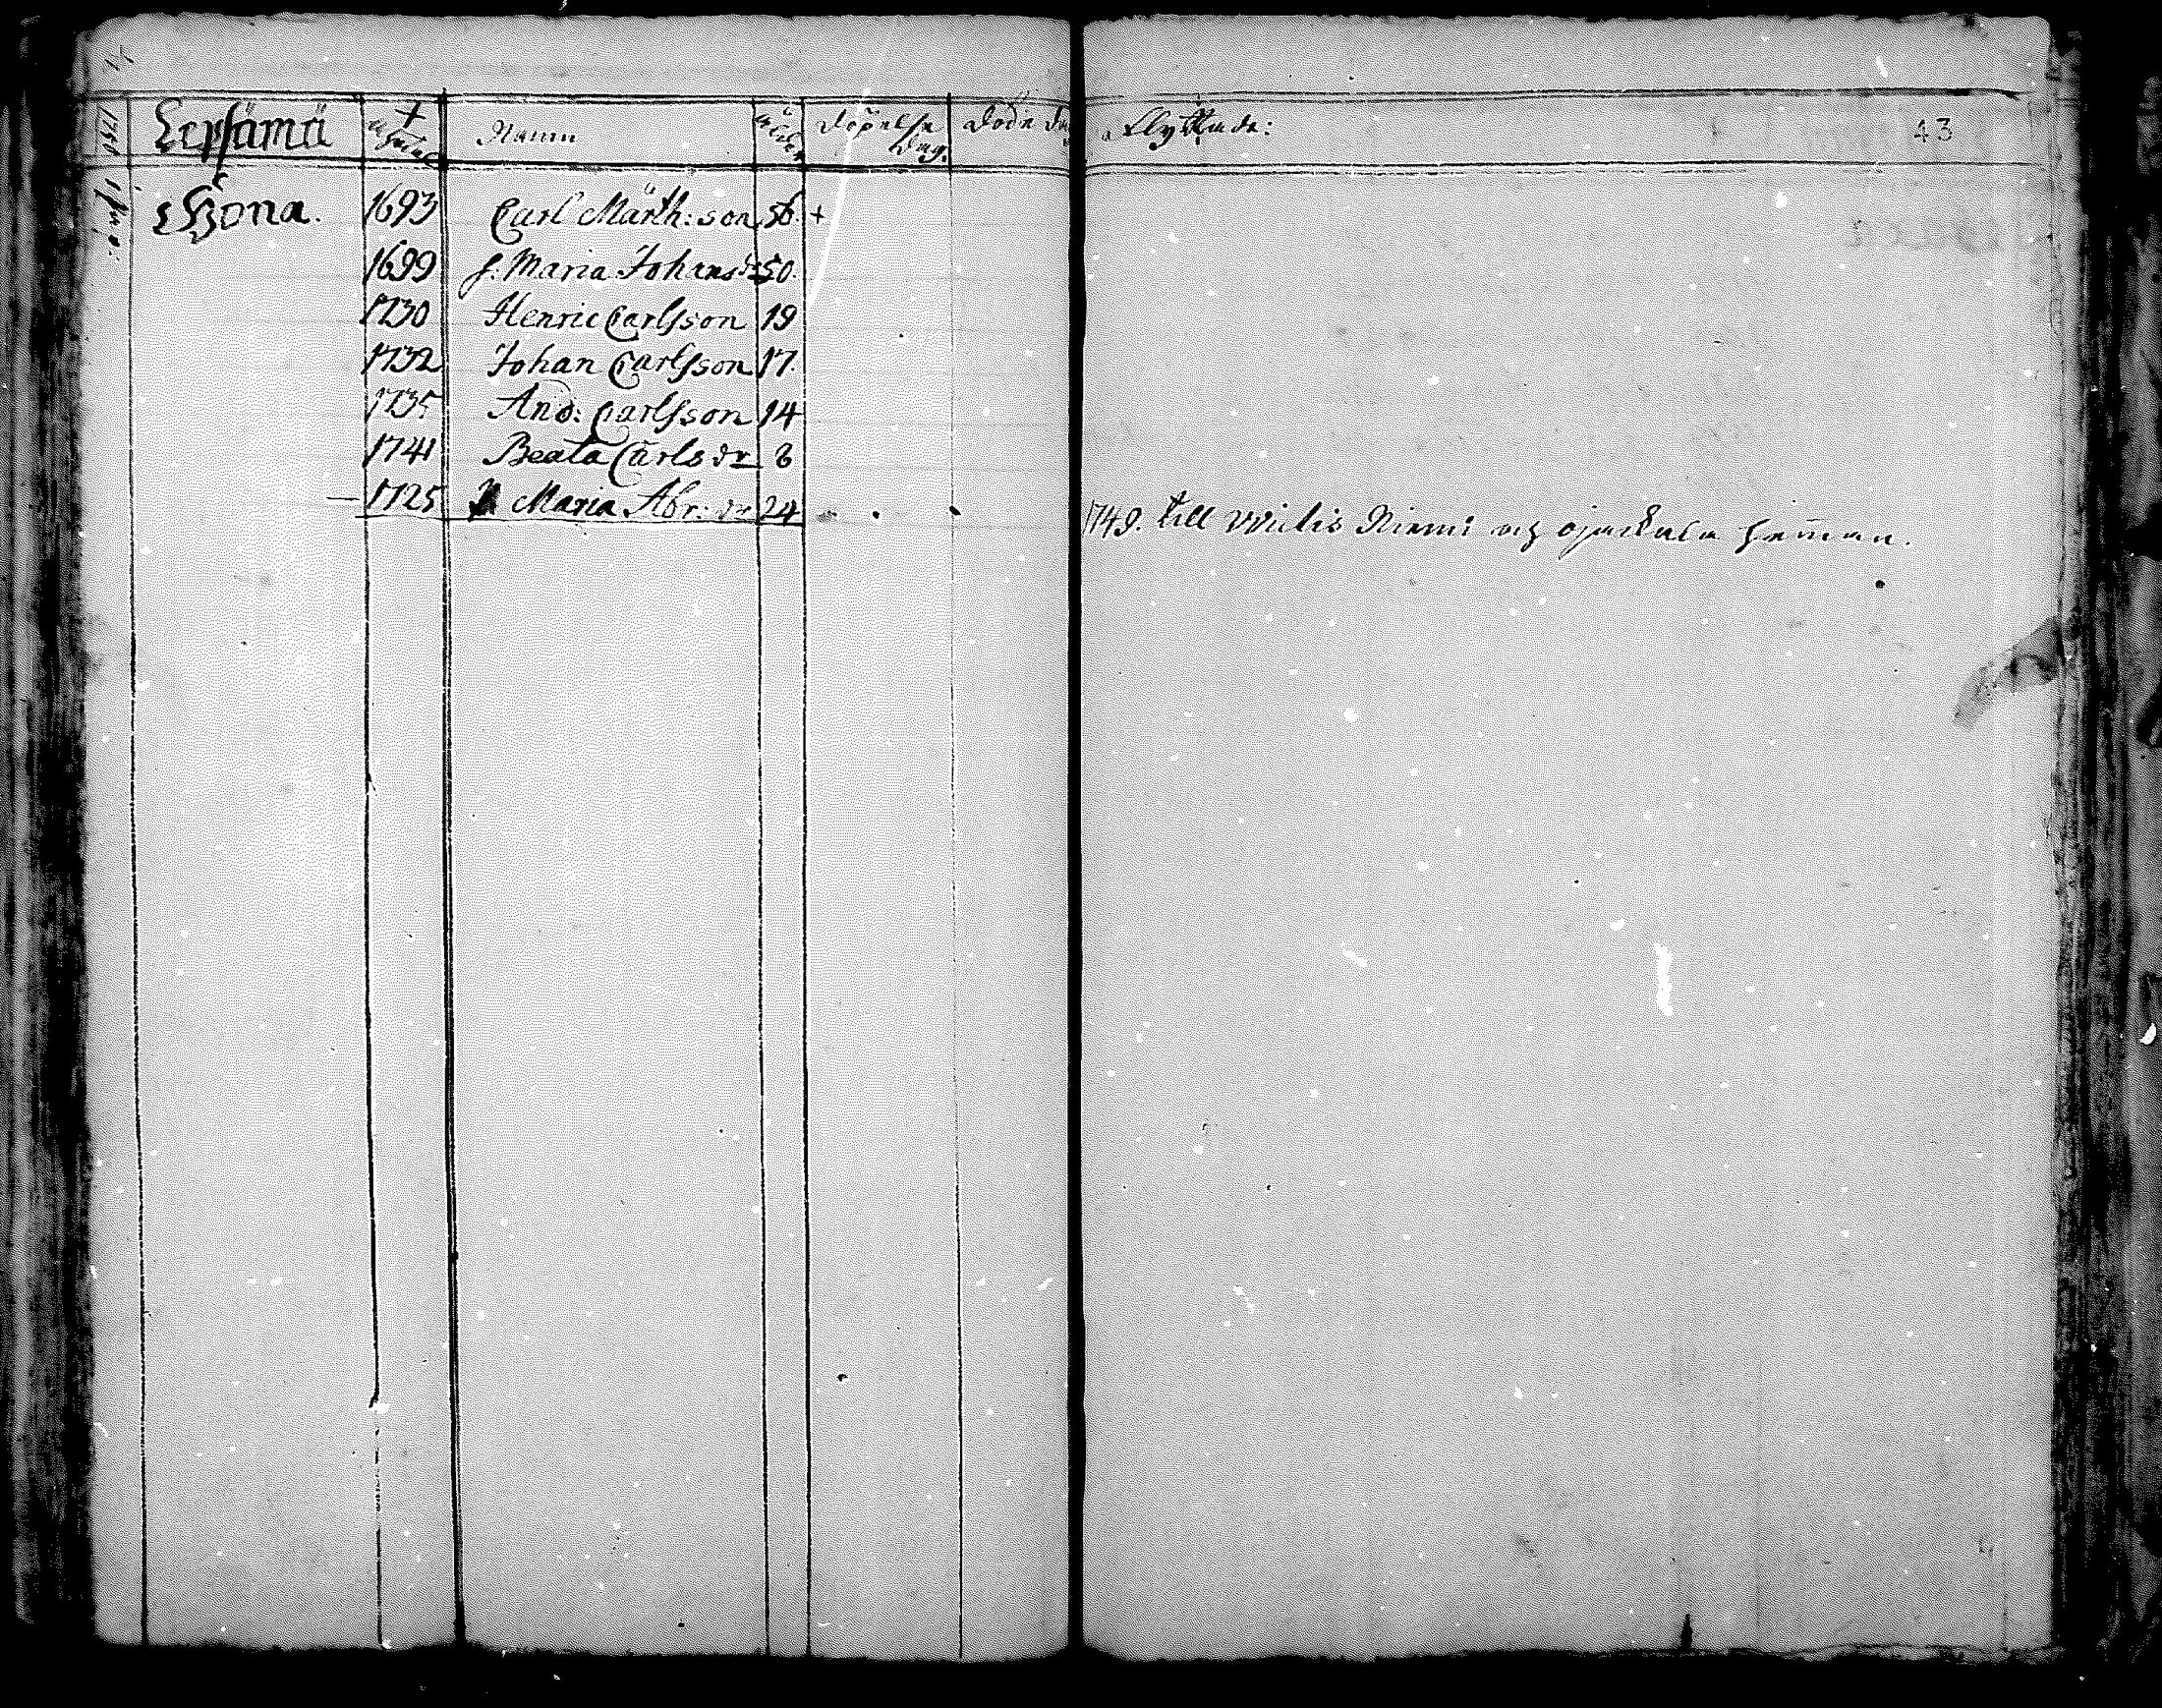 Lepsämä Namn ålder Döpelse Dag. Döde Da Flyttade: 43
1693 Carl Märth: son 56 +
1699 h. Maria Johans dr 50.
1730 Henric Carlsson 19
1732 Johan Carlsson 17.
1735 And: Carlsson 14
1741 Beata Carls dr 8
1725 Maria Abr: dr 24 1749. till Niemi och hemman.